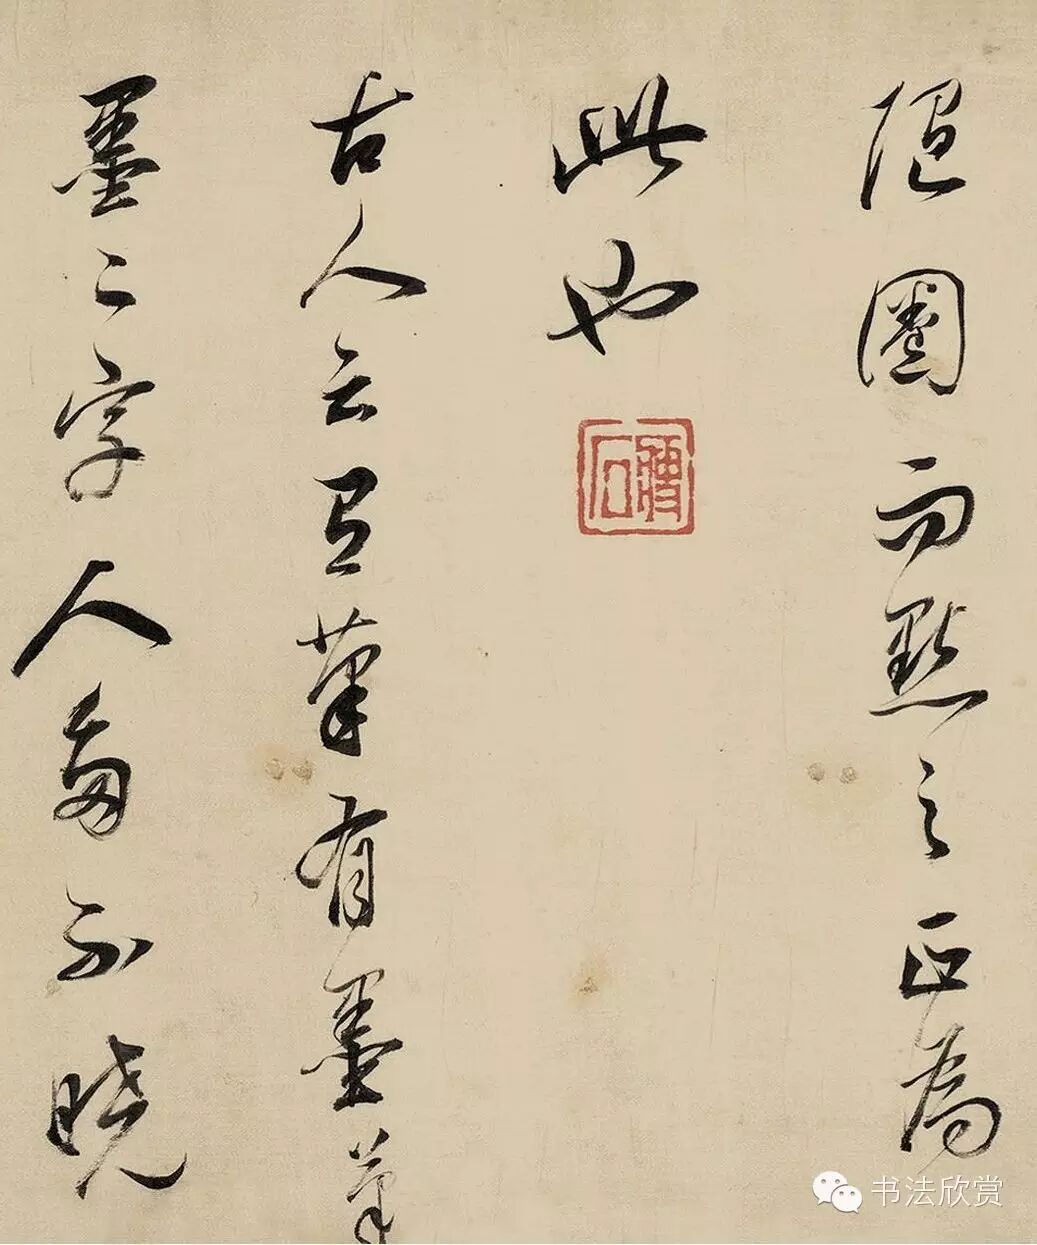 圈而點之正為
此也
古人云有筆有墨筆
墨二字人多不曉
书法欣赏